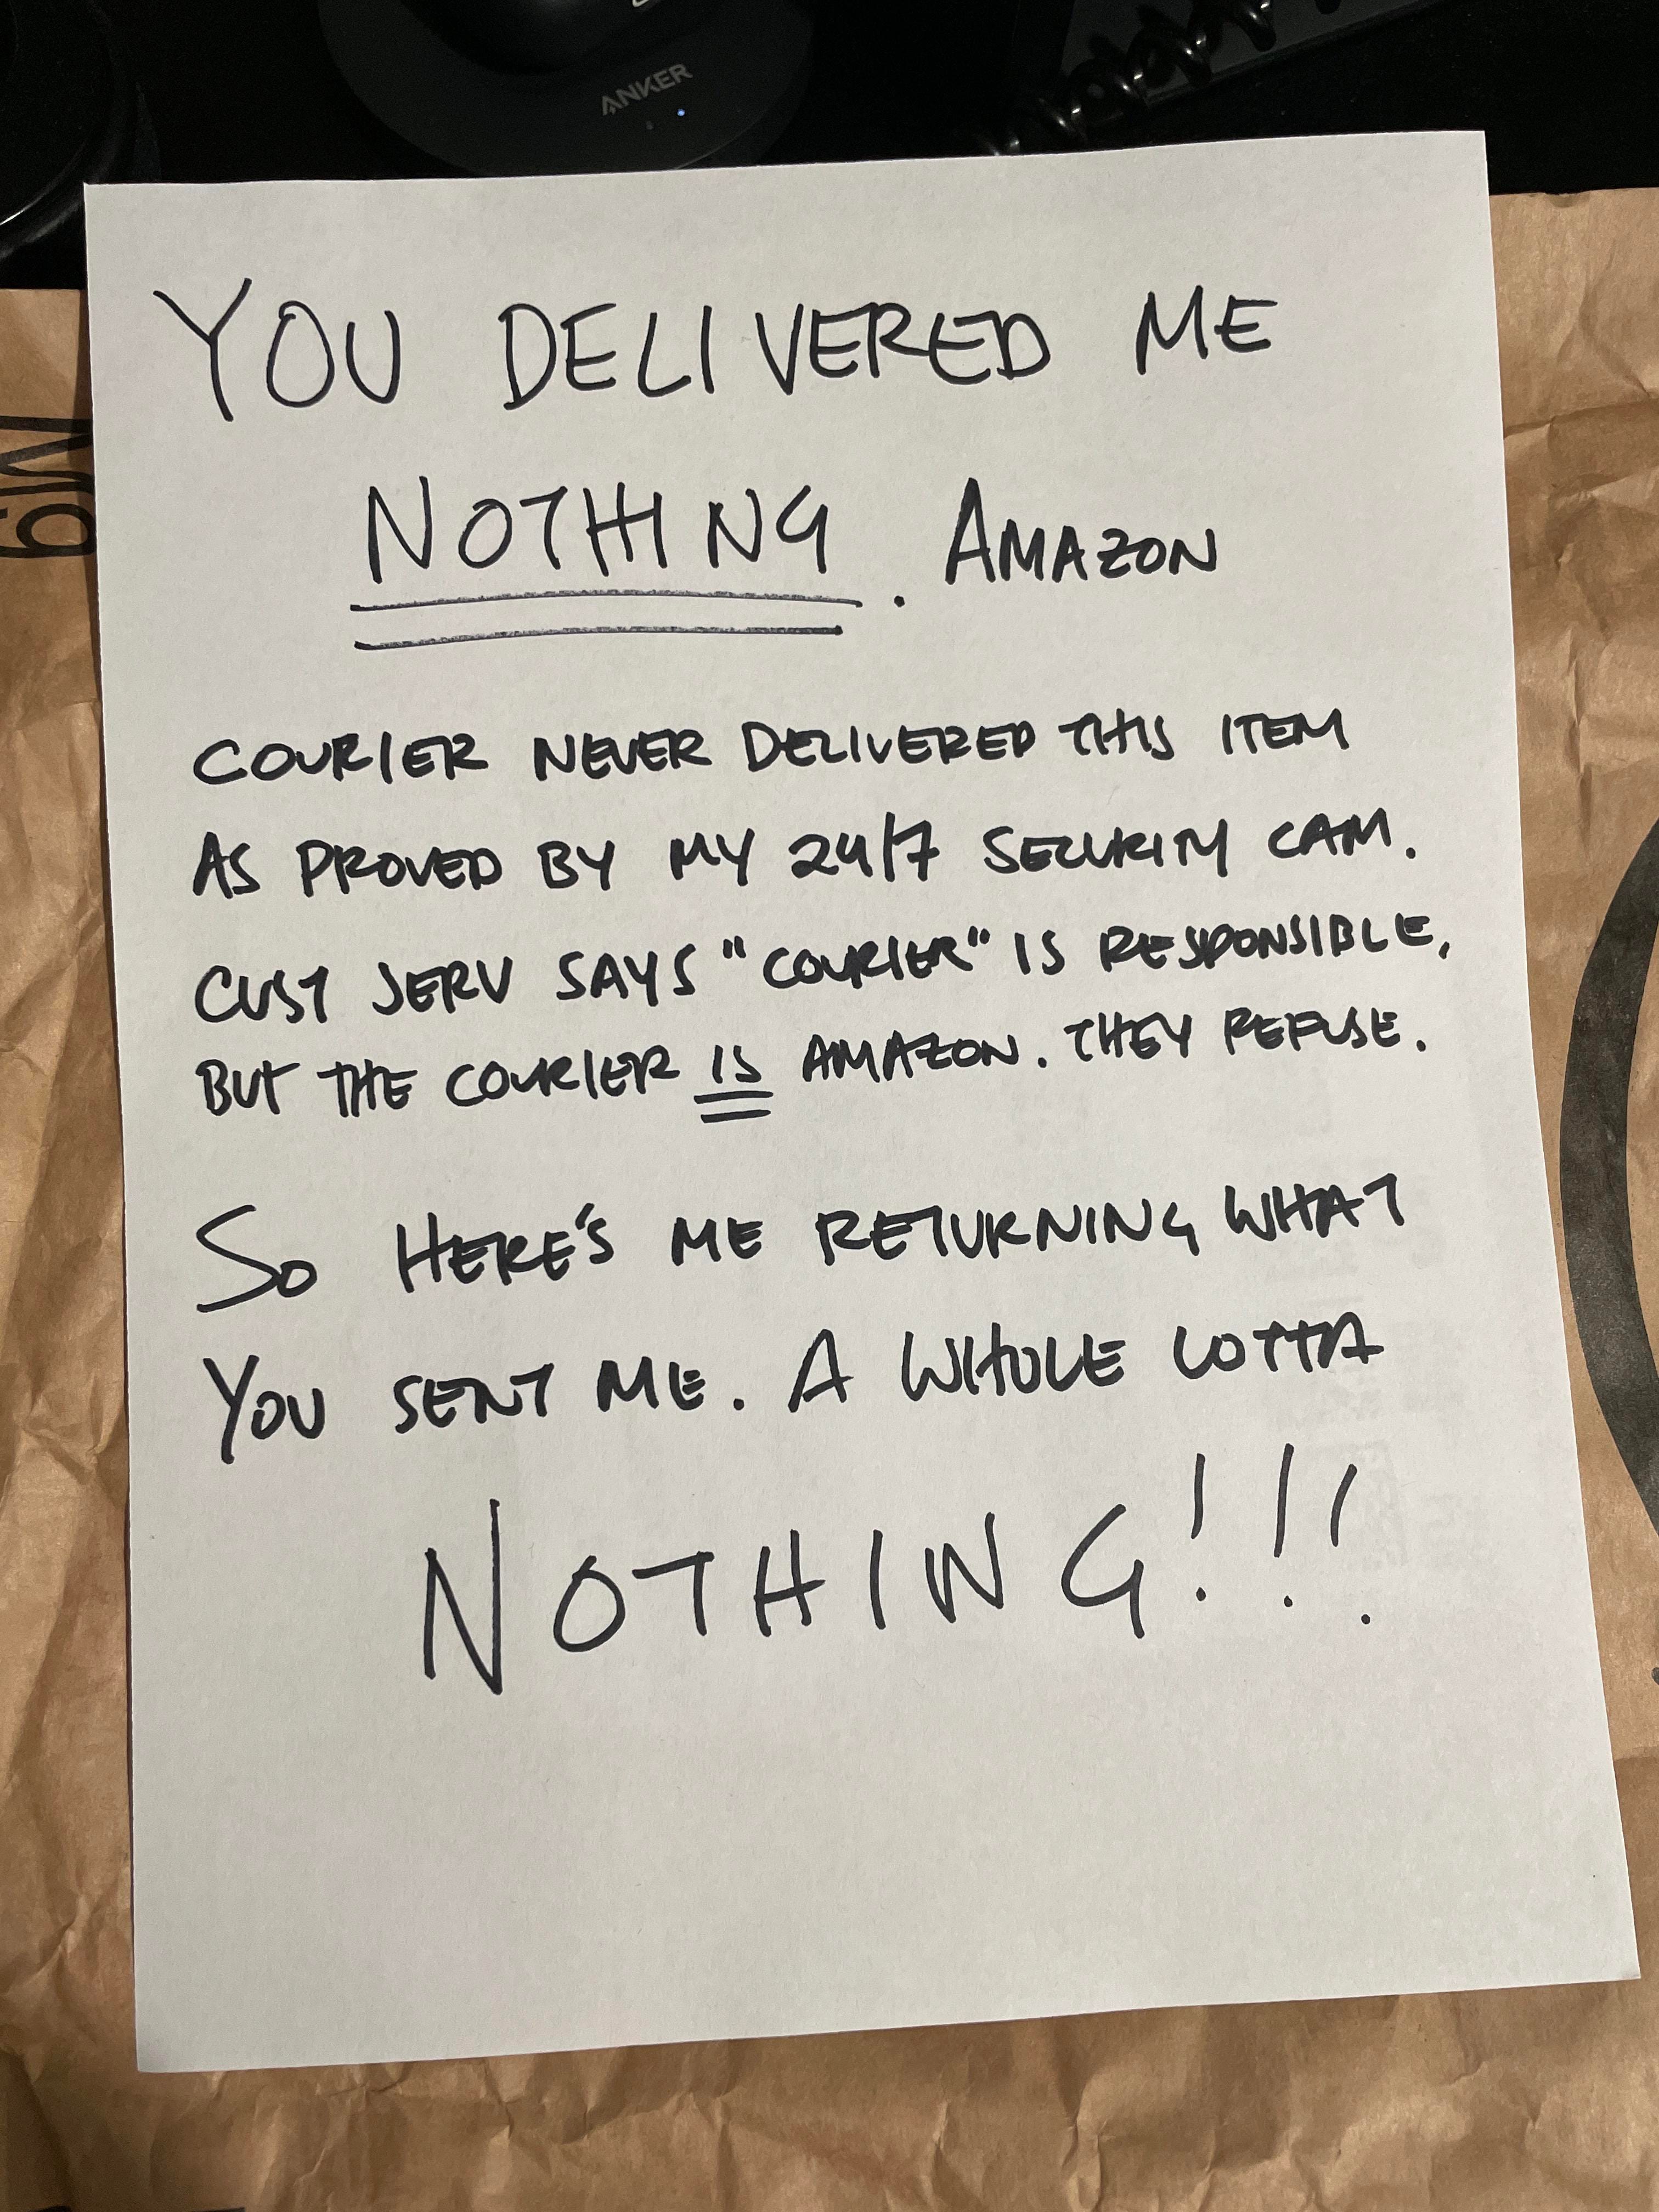 ANKER
YOU DELIVERED ME
NOTHING. AMAZON
COURIER NEVER DELIVERED THIS ITEM
AS PROVED BY MY 24/7 SECURITY CAM.
CUST SERV SAYS "COURIER" IS RESPONSIBLE,
BUT THE COURIER IS AMAZON. THEY REFUSE.
SO HERE'S ME RETURNING WHAT
YOU SENT ME. A WHOLE LOTTA
NOTHING!!!